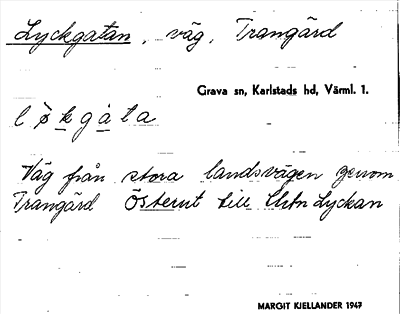 Lyckgatan, väg, Trangärd
Grava sn, Karlstads hd, Värml. l.
Väg från stora landsvägen genom
Trangärd Österut till Lyckan
MARGIT KJELLANDER 1947